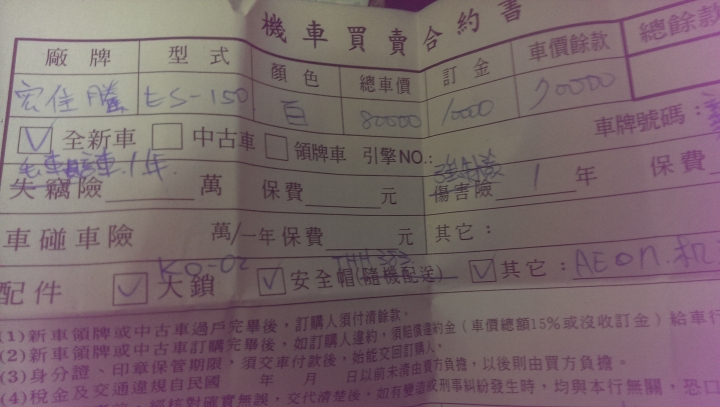 機車買賣合約書
廠牌 型式 顏色 總車價 訂金 車價餘款 總餘款
宏佳騰 ES-150 白 80000 10000 70000
全新車 中古車 領牌車 引擎NO.: 車牌號碼:
失竊險 萬 保費 元 傷害險 1 年 保費
車碰車險 萬/一年保費 元 其它:
配件 大鎖 KD-02 安全帽(隨機配送) 其它: AEON.机
(1)新車領牌或中古車過戶完畢後,訂購人須付清餘款.
(2)新車領牌或中古車訂購完畢後,如訂購人違約,須賠償違約金(車價總額15%或沒收訂金)給車行
(3)身分證、印章保管期限,須交車付款後,始能交回訂購人.
(4)稅金及交通違規自民國 年 月 日以前未清由賣方負擔,以後則由買方負擔.
如有變造或刑事糾紛發生時,均與本行無關,恐口